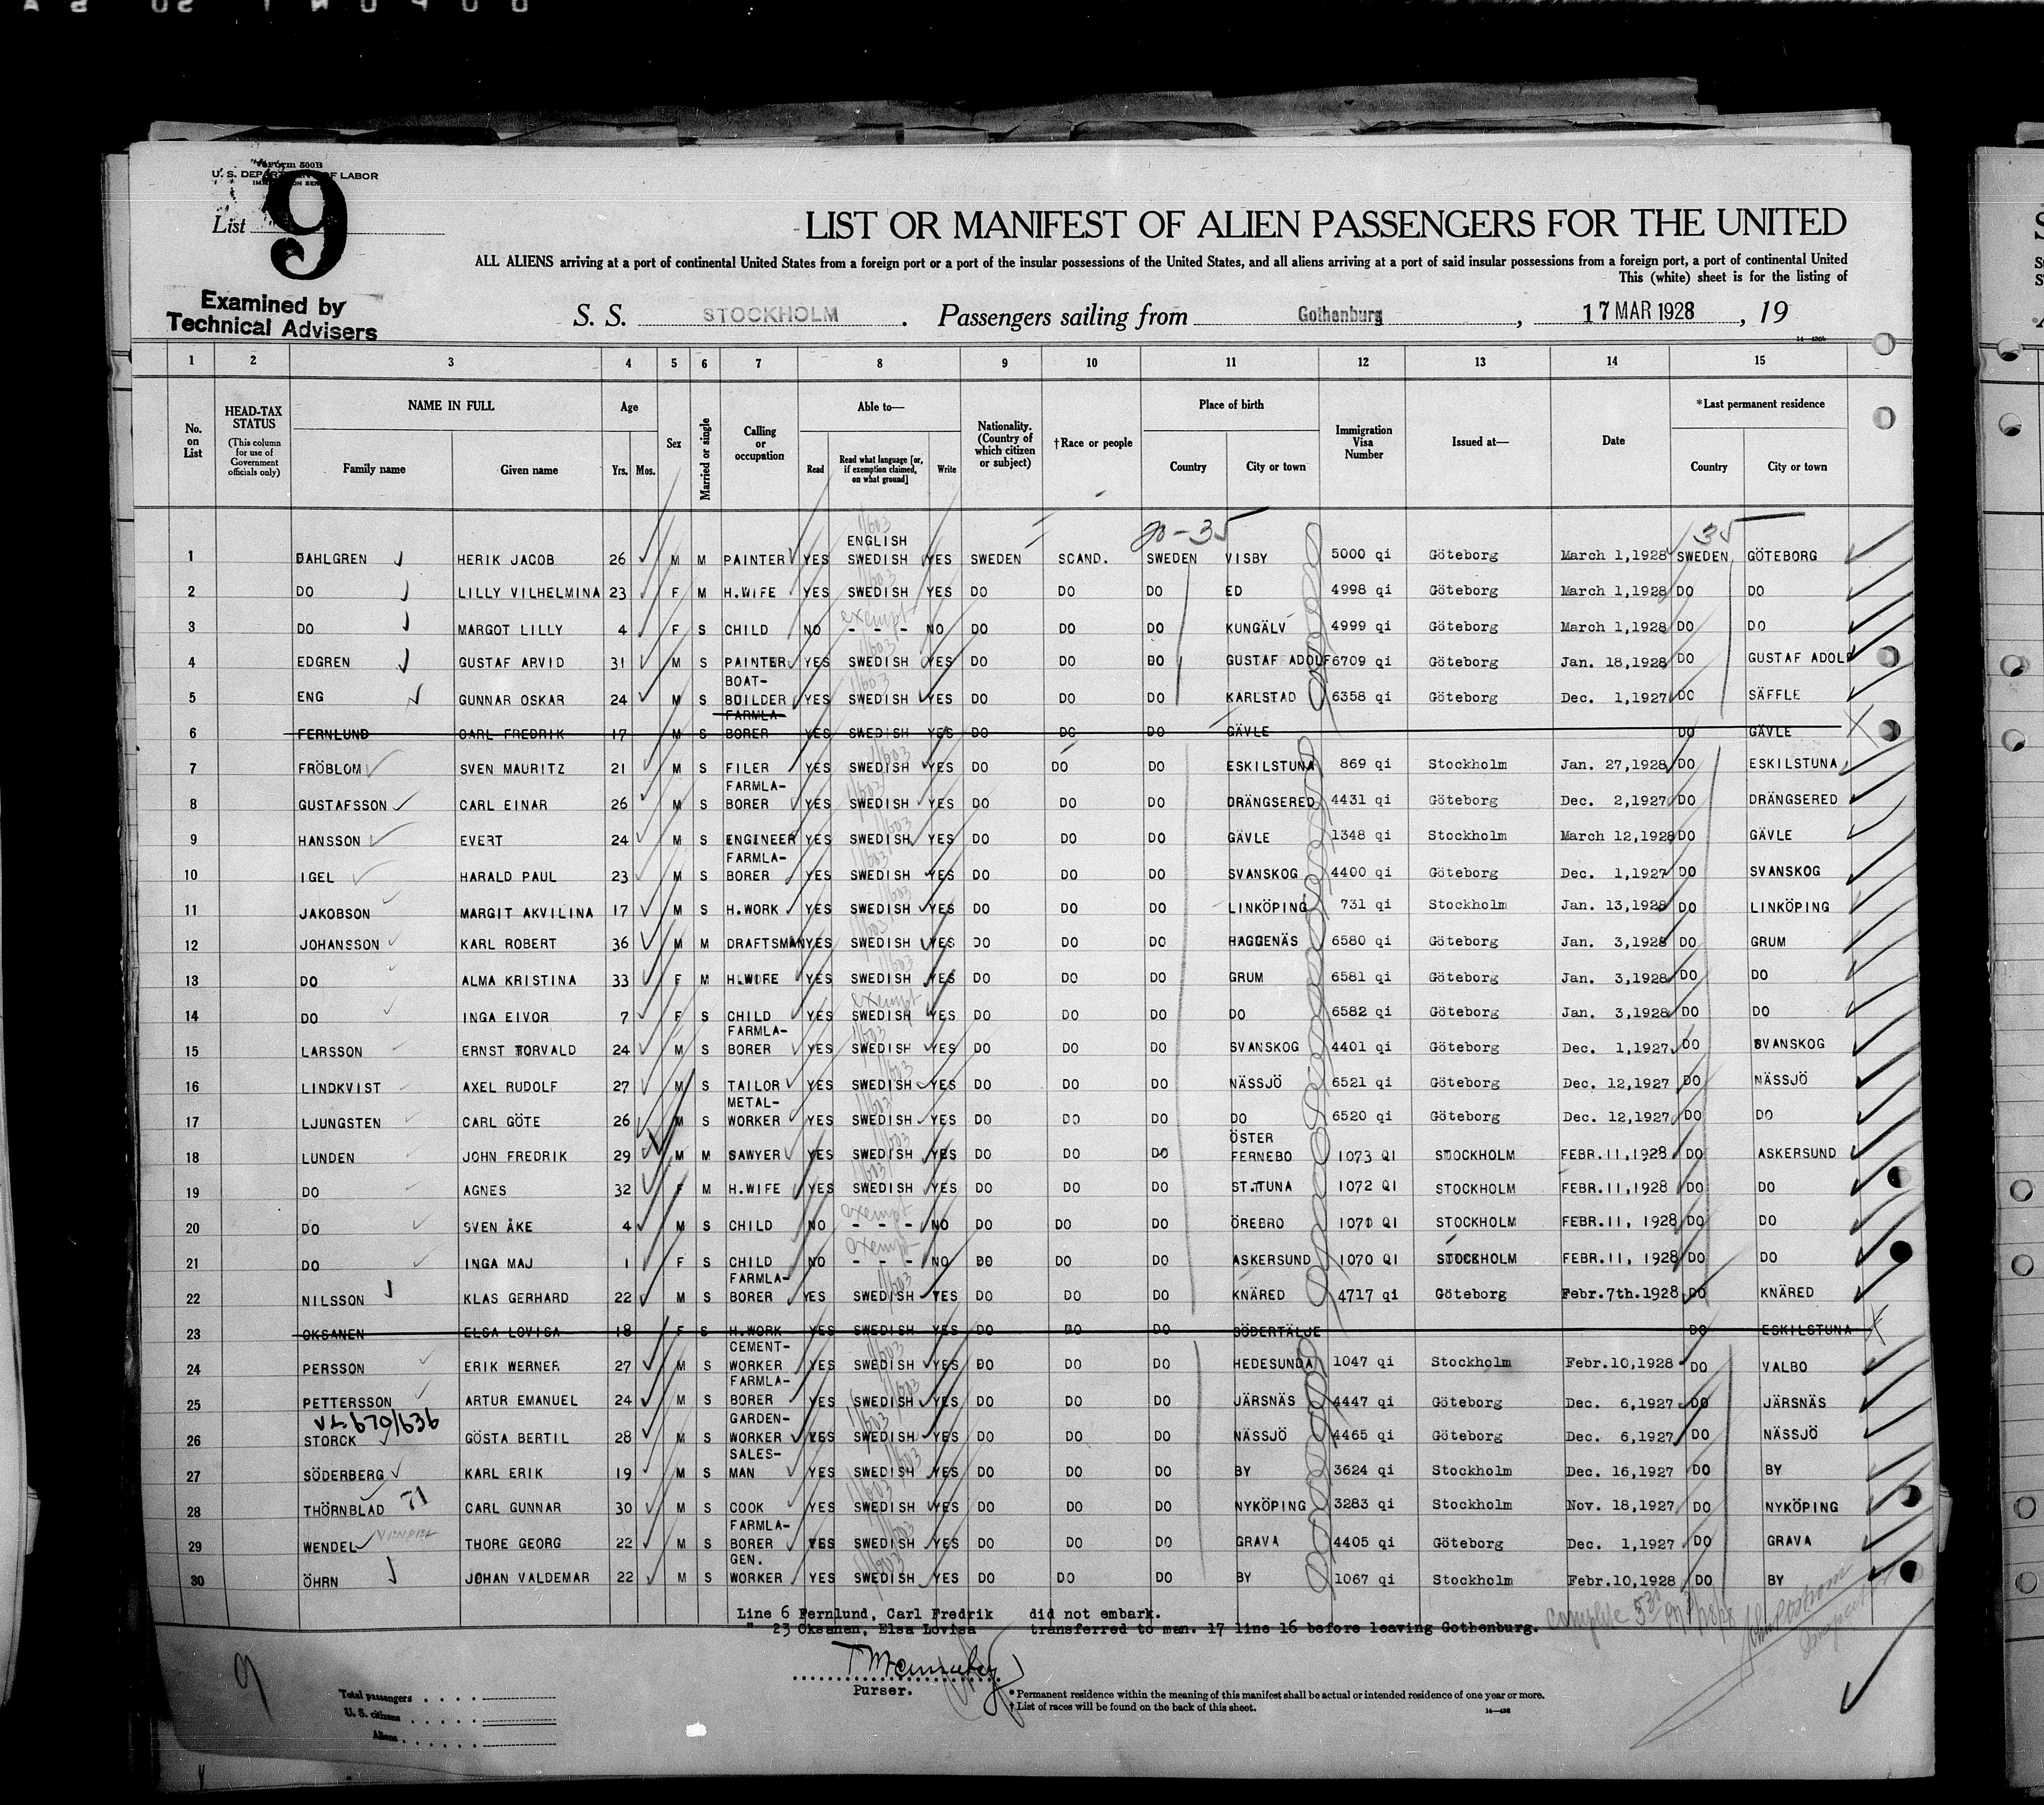 Form 500B
U. S. DEPARTMENT OF LABOR
List 9
Examined by
Technical Advisers
LIST OR MANIFEST OF ALIEN PASSENGERS FOR THE UNITED
ALL ALIENS arriving at a port of continental United States from a foreign port or a port of the insular possessions of the United States, and all aliens arriving at a port of said insular possessions from a foreign port, a port of continental United
This (white) sheet is for the listing of
S. S. STOCKHOLM. Passengers sailing from Gothenburg, 17 MAR 1928, 19
1 2 3 4 5 6 7 8 9 10 11 12 13 14 15
No. on List
HEAD-TAX STATUS (This column for use of Government officials only)
NAME IN FULL Family name Given name
Age Yrs. Mos.
Sex
Married or single
Calling or occupation
Able to— Read Read what language [or, if exemption claimed, on what ground] Write
Nationality. (Country of which citizen or subject)
†Race or people
Place of birth Country City or town
Immigration Visa Number
Issued at—
Date
*Last permanent residence Country City or town
20-35 35
1 DAHLGREN HERIK JACOB 26 M M PAINTER YES ENGLISH SWEDISH YES SWEDEN SCAND. SWEDEN VISBY 5000 qi Göteborg March 1,1928 SWEDEN GÖTEBORG
2 DO LILLY VILHELMINA 23 F M H.WIFE YES SWEDISH YES DO DO DO ED 4998 qi Göteborg March 1,1928 DO DO
3 DO MARGOT LILLY 4 F S CHILD NO exempt - - - NO DO DO DO KUNGÄLV 4999 qi Göteborg March 1,1928 DO DO
4 EDGREN GUSTAF ARVID 31 M S PAINTER YES SWEDISH YES DO DO DO GUSTAF ADOLF 6709 qi Göteborg Jan. 18,1928 DO GUSTAF ADOLF
5 ENG GUNNAR OSKAR 24 M S BOAT-BUILDER YES SWEDISH YES DO DO DO KARLSTAD 6358 qi Göteborg Dec. 1,1927 DO SÄFFLE
6 FERNLUND CARL FREDRIK 17 M S FARMLA-BORER YES SWEDISH YES DO DO DO GÄVLE DO GÄVLE
7 FRÖBLOM SVEN MAURITZ 21 M S FILER YES SWEDISH YES DO DO DO ESKILSTUNA 869 qi Stockholm Jan. 27,1928 DO ESKILSTUNA
8 GUSTAFSSON CARL EINAR 26 M S FARMLA-BORER YES SWEDISH YES DO DO DO DRÄNGSERED 4431 qi Göteborg Dec. 2,1927 DO DRÄNGSERED
9 HANSSON EVERT 24 M S ENGINEER YES SWEDISH YES DO DO DO GÄVLE 1348 qi Stockholm March 12,1928 DO GÄVLE
10 IGEL HARALD PAUL 23 M S FARMLA-BORER YES SWEDISH YES DO DO DO SVANSKOG 4400 qi Göteborg Dec. 1,1927 DO SVANSKOG
11 JAKOBSON MARGIT AKVILINA 17 M S H.WORK YES SWEDISH YES DO DO DO LINKÖPING 731 qi Stockholm Jan. 13,1928 DO LINKÖPING
12 JOHANSSON KARL ROBERT 36 M M DRAFTSMAN YES SWEDISH YES DO DO DO HAGGENÄS 6580 qi Göteborg Jan. 3,1928 DO GRUM
13 DO ALMA KRISTINA 33 F M H.WIFE YES SWEDISH YES DO DO DO GRUM 6581 qi Göteborg Jan. 3,1928 DO DO
14 DO INGA EIVOR 7 F S CHILD YES exempt SWEDISH YES DO DO DO DO 6582 qi Göteborg Jan. 3,1928 DO DO
15 LARSSON ERNST TORVALD 24 M S FARMLA-BORER YES SWEDISH YES DO DO DO SVANSKOG 4401 qi Göteborg Dec. 1,1927 DO SVANSKOG
16 LINDKVIST AXEL RUDOLF 27 M S TAILOR YES SWEDISH YES DO DO DO NÄSSJÖ 6521 qi Göteborg Dec. 12,1927 DO NÄSSJÖ
17 LJUNGSTEN CARL GÖTE 26 M S METAL-WORKER YES SWEDISH YES DO DO DO DO 6520 qi Göteborg Dec. 12,1927 DO DO
18 LUNDEN JOHN FREDRIK 29 M M SAWYER YES SWEDISH YES DO DO DO ÖSTER FERNEBO 1073 QI STOCKHOLM FEBR.11,1928 DO ASKERSUND
19 DO AGNES 32 F M H.WIFE YES SWEDISH YES DO DO DO ST.TUNA 1072 QI STOCKHOLM FEBR.11,1928 DO DO
20 DO SVEN ÅKE 4 M S CHILD NO exempt - - - NO DO DO DO ÖREBRO 1071 QI STOCKHOLM FEBR.11, 1928 DO DO
21 DO INGA MAJ 1 F S CHILD NO exempt - - - NO DO DO DO ASKERSUND 1070 QI STOCKHOLM FEBR.11, 1928 DO DO
22 NILSSON KLAS GERHARD 22 M S FARMLA-BORER YES SWEDISH YES DO DO DO KNÄRED 4717 qi Göteborg Febr.7th.1928 DO KNÄRED
23 OKSANEN ELSA LOVISA 18 F S H.WORK YES SWEDISH YES DO DO DO SÖDERTÄLJE DO ESKILSTUNA
24 PERSSON ERIK WERNER 27 M S CEMENT-WORKER YES SWEDISH YES DO DO DO HEDESUNDA 1047 qi Stockholm Febr.10,1928 DO VALBO
25 PETTERSSON ARTUR EMANUEL 24 M S FARMLA-BORER YES SWEDISH YES DO DO DO JÄRSNÄS 4447 qi Göteborg Dec. 6,1927 DO JÄRSNÄS
VL 670/636
26 STORCK GÖSTA BERTIL 28 M S GARDEN-WORKER YES SWEDISH YES DO DO DO NÄSSJÖ 4465 qi Göteborg Dec. 6,1927 DO NÄSSJÖ
27 SÖDERBERG KARL ERIK 19 M S SALES-MAN YES SWEDISH YES DO DO DO BY 3624 qi Stockholm Dec. 16,1927 DO BY
28 THÖRNBLAD 71 CARL GUNNAR 30 M S COOK YES SWEDISH YES DO DO DO NYKÖPING 3283 qi Stockholm Nov. 18,1927 DO NYKÖPING
29 WENDEL THORE GEORG 22 M S FARMLA-BORER YES SWEDISH YES DO DO DO GRAVA 4405 qi Göteborg Dec. 1,1927 DO GRAVA
30 ÖHRN JOHAN VALDEMAR 22 M S GEN. WORKER YES SWEDISH YES DO DO DO BY 1067 qi Stockholm Febr.10,1928 DO BY
Line 6 Fernlund, Carl Fredrik did not embark.
" 23 Oksanen, Elsa Lovisa transferred to man. 17 line 16 before leaving Gothenburg.
complete
Purser.
9
Total passengers
U. S. citizens
Aliens
* Permanent residence within the meaning of this manifest shall be actual or intended residence of one year or more.
† List of races will be found on the back of this sheet.